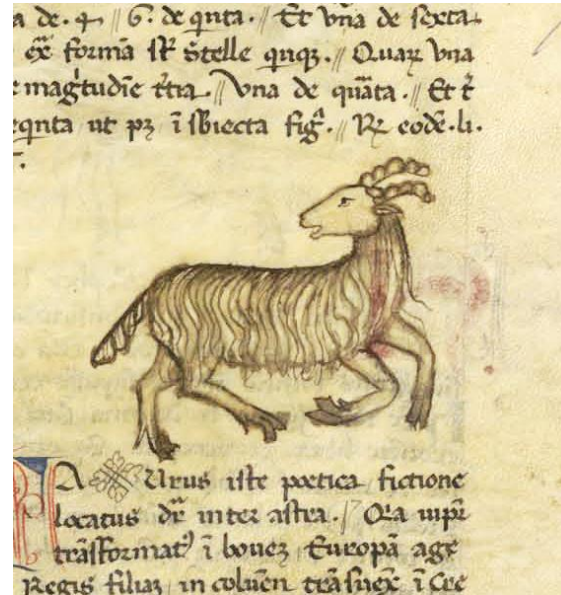 a de .4. // 6. de qnta. // Et vna de sexta.
ex̄ formā st̄ stelle qnqꝫ. // Quaꝝ vna
magtudīe t̄tia. // vna de quāta. // Et t̄
eqnta ut pꝫ ī sbiecta figᵃ. // Rꝫ eodē. li.
TAurus iste poetica fictione
locatus dr̄ inter astra.
trāsformatꝰ ī boueꝫ Europā age
Regis filiaꝫ in colueꝫ trāsuex̄ ī Cre